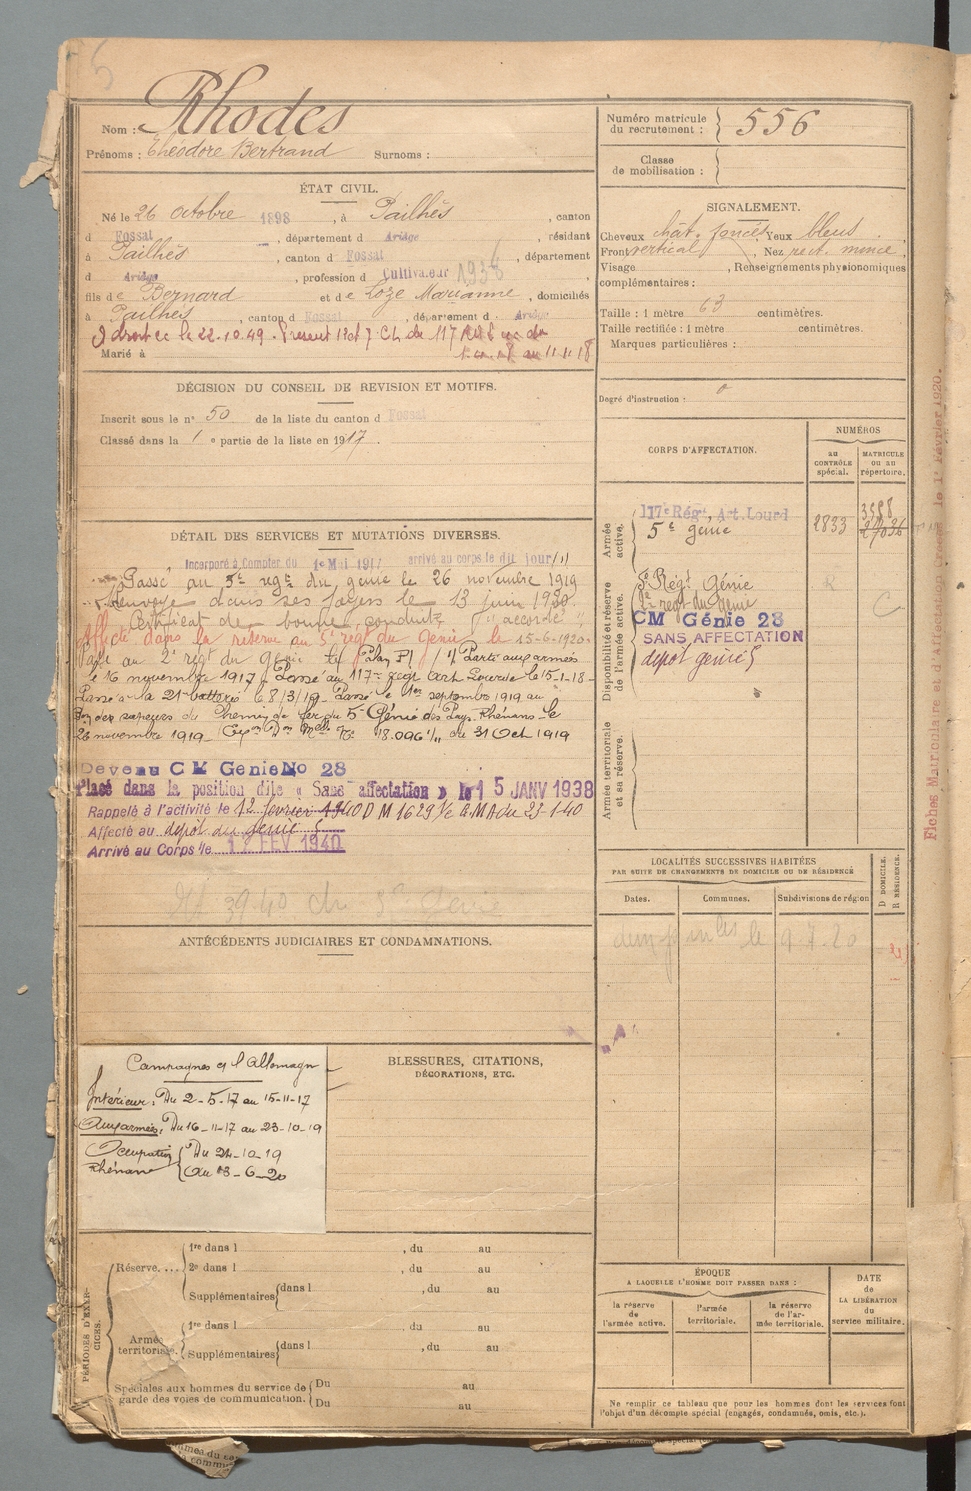 5
Nom : Rhodes
Prénoms : Théodore Bertrand Surnoms :
ÉTAT CIVIL.
Né le 26 octobre 1898, à Pailhès, canton
d Fossat, département d Ariège, résidant
à Pailhès, canton d Fossat, département
d Ariège, profession de Cultivateur 1938
fils de Bernard et de Loze Marianne, domiciliés
à Pailhès, canton d Fossat, département d Ariège
le 22.10.49. Présent
au 11.11.18
Marié à
DÉCISION DU CONSEIL DE REVISION ET MOTIFS.
Inscrit sous le n° 50 de la liste du canton d Fossat
Classé dans la 1 e partie de la liste en 1917.
DÉTAIL DES SERVICES ET MUTATIONS DIVERSES.
Incorporé à Compter du 1er Mai 1917 arrivé au corps le dit jour
Passé au 5e regt du génie le 26 novembre 1919
Renvoyé dans ses foyers le 13 juin 1920.
Certificat de bonne conduite "accordé"
Affecté dans la réserve au 5e regt du Génie le 15-6-1920.
Passé au 2e regt du Génie Parti aux armées
le 16 novembre 1917 Passé au 117e regt art Lourde le 15-1-18-
Passé à la 21e batterie le 8/3/19 Passé le 1er septembre 1919 au
des sapeurs du Chemin de fer du 5e Génie des Pays Rhénans le
26 novembre 1919 18.096 du 31 Oct 1919
Devenu CM Génie No 28
Placé dans la position dite « Sans affectation » le 15 JANV 1938
Rappelé à l'activité le 12 février 1940 D M 1629 du 23-1-40
Affecté au dépôt du génie 5
Arrivé au Corps le 12 FEV 1940
ANTÉCÉDENTS JUDICIAIRES ET CONDAMNATIONS.
Campagnes et l'Allemagne
Intérieur : Du 2-5-17 au 15-11-17
Aux armées : Du 16-11-17 au 23-10-19
Occupation Du 24-10-19
Rhénane au 13-6-20
BLESSURES, CITATIONS,
DÉCORATIONS, ETC.
PÉRIODES D'EXERCICES.
Réserve.... 1re dans l , du au
2e dans l , du au
Supplémentaires dans l , du au
Armée territoriale. 1re dans l , du au
Supplémentaires dans l , du au
Spéciales aux hommes du service de Du au
garde des voies de communication. Du au
Numéro matricule
du recrutement : 556
Classe
de mobilisation :
SIGNALEMENT.
Cheveux chât. foncés, Yeux bleus
Front vertical, Nez rect. mince
Visage , Renseignements physionomiques
complémentaires :
Taille : 1 mètre 63 centimètres.
Taille rectifiée : 1 mètre centimètres.
Marques particulières :
Degré d'instruction :
CORPS D'AFFECTATION.
NUMÉROS
au
CONTRÔLE
spécial.
MATRICULE
ou au
répertoire.
Armée
active.
117e Régt. Art. Lourd
5e génie
2833
Disponibilité et réserve
de l'armée active.
5e Régt Génie
regt du génie
CM Génie 28
SANS AFFECTATION
dépôt génie 5
R
C
Armée territoriale
et sa réserve.
LOCALITÉS SUCCESSIVES HABITÉES
PAR SUITE DE CHANGEMENTS DE DOMICILE OU DE RÉSIDENCE
D DOMICILE.
R RÉSIDENCE.
Dates. Communes. Subdivisions de région
le 9.7.20
ÉPOQUE
A LAQUELLE L'HOMME DOIT PASSER DANS :
la réserve
de
l'armée active.
l'armée
territoriale.
la réserve
de l'ar-
mée territoriale.
DATE
de
LA LIBÉRATION
du
service militaire.
Ne remplir ce tableau que pour les hommes dont les services font
l'objet d'un décompte spécial (engagés, condamnés, omis, etc.).
Fiches Matriculaire et d'Affectation le 1er Février 1920.